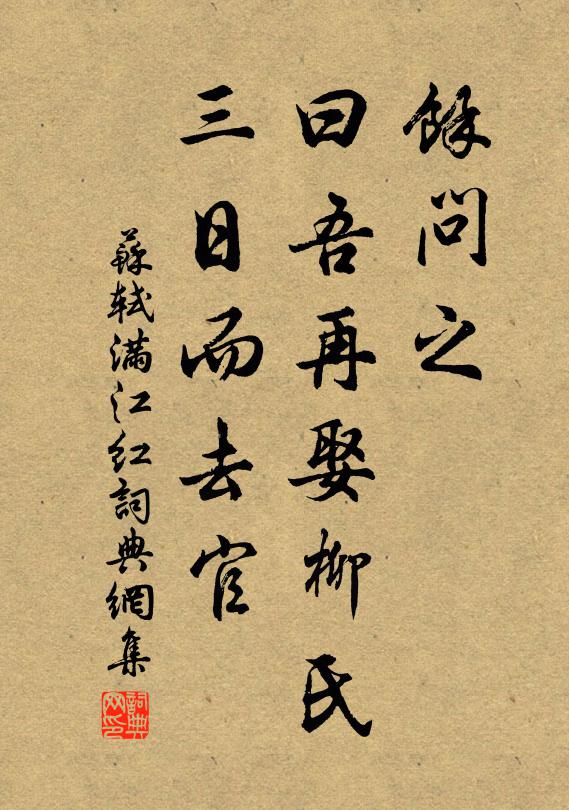 餘問之
曰吾再娶柳氏
三日而去官
蘇軾滿江紅詞典網集
詞典网印